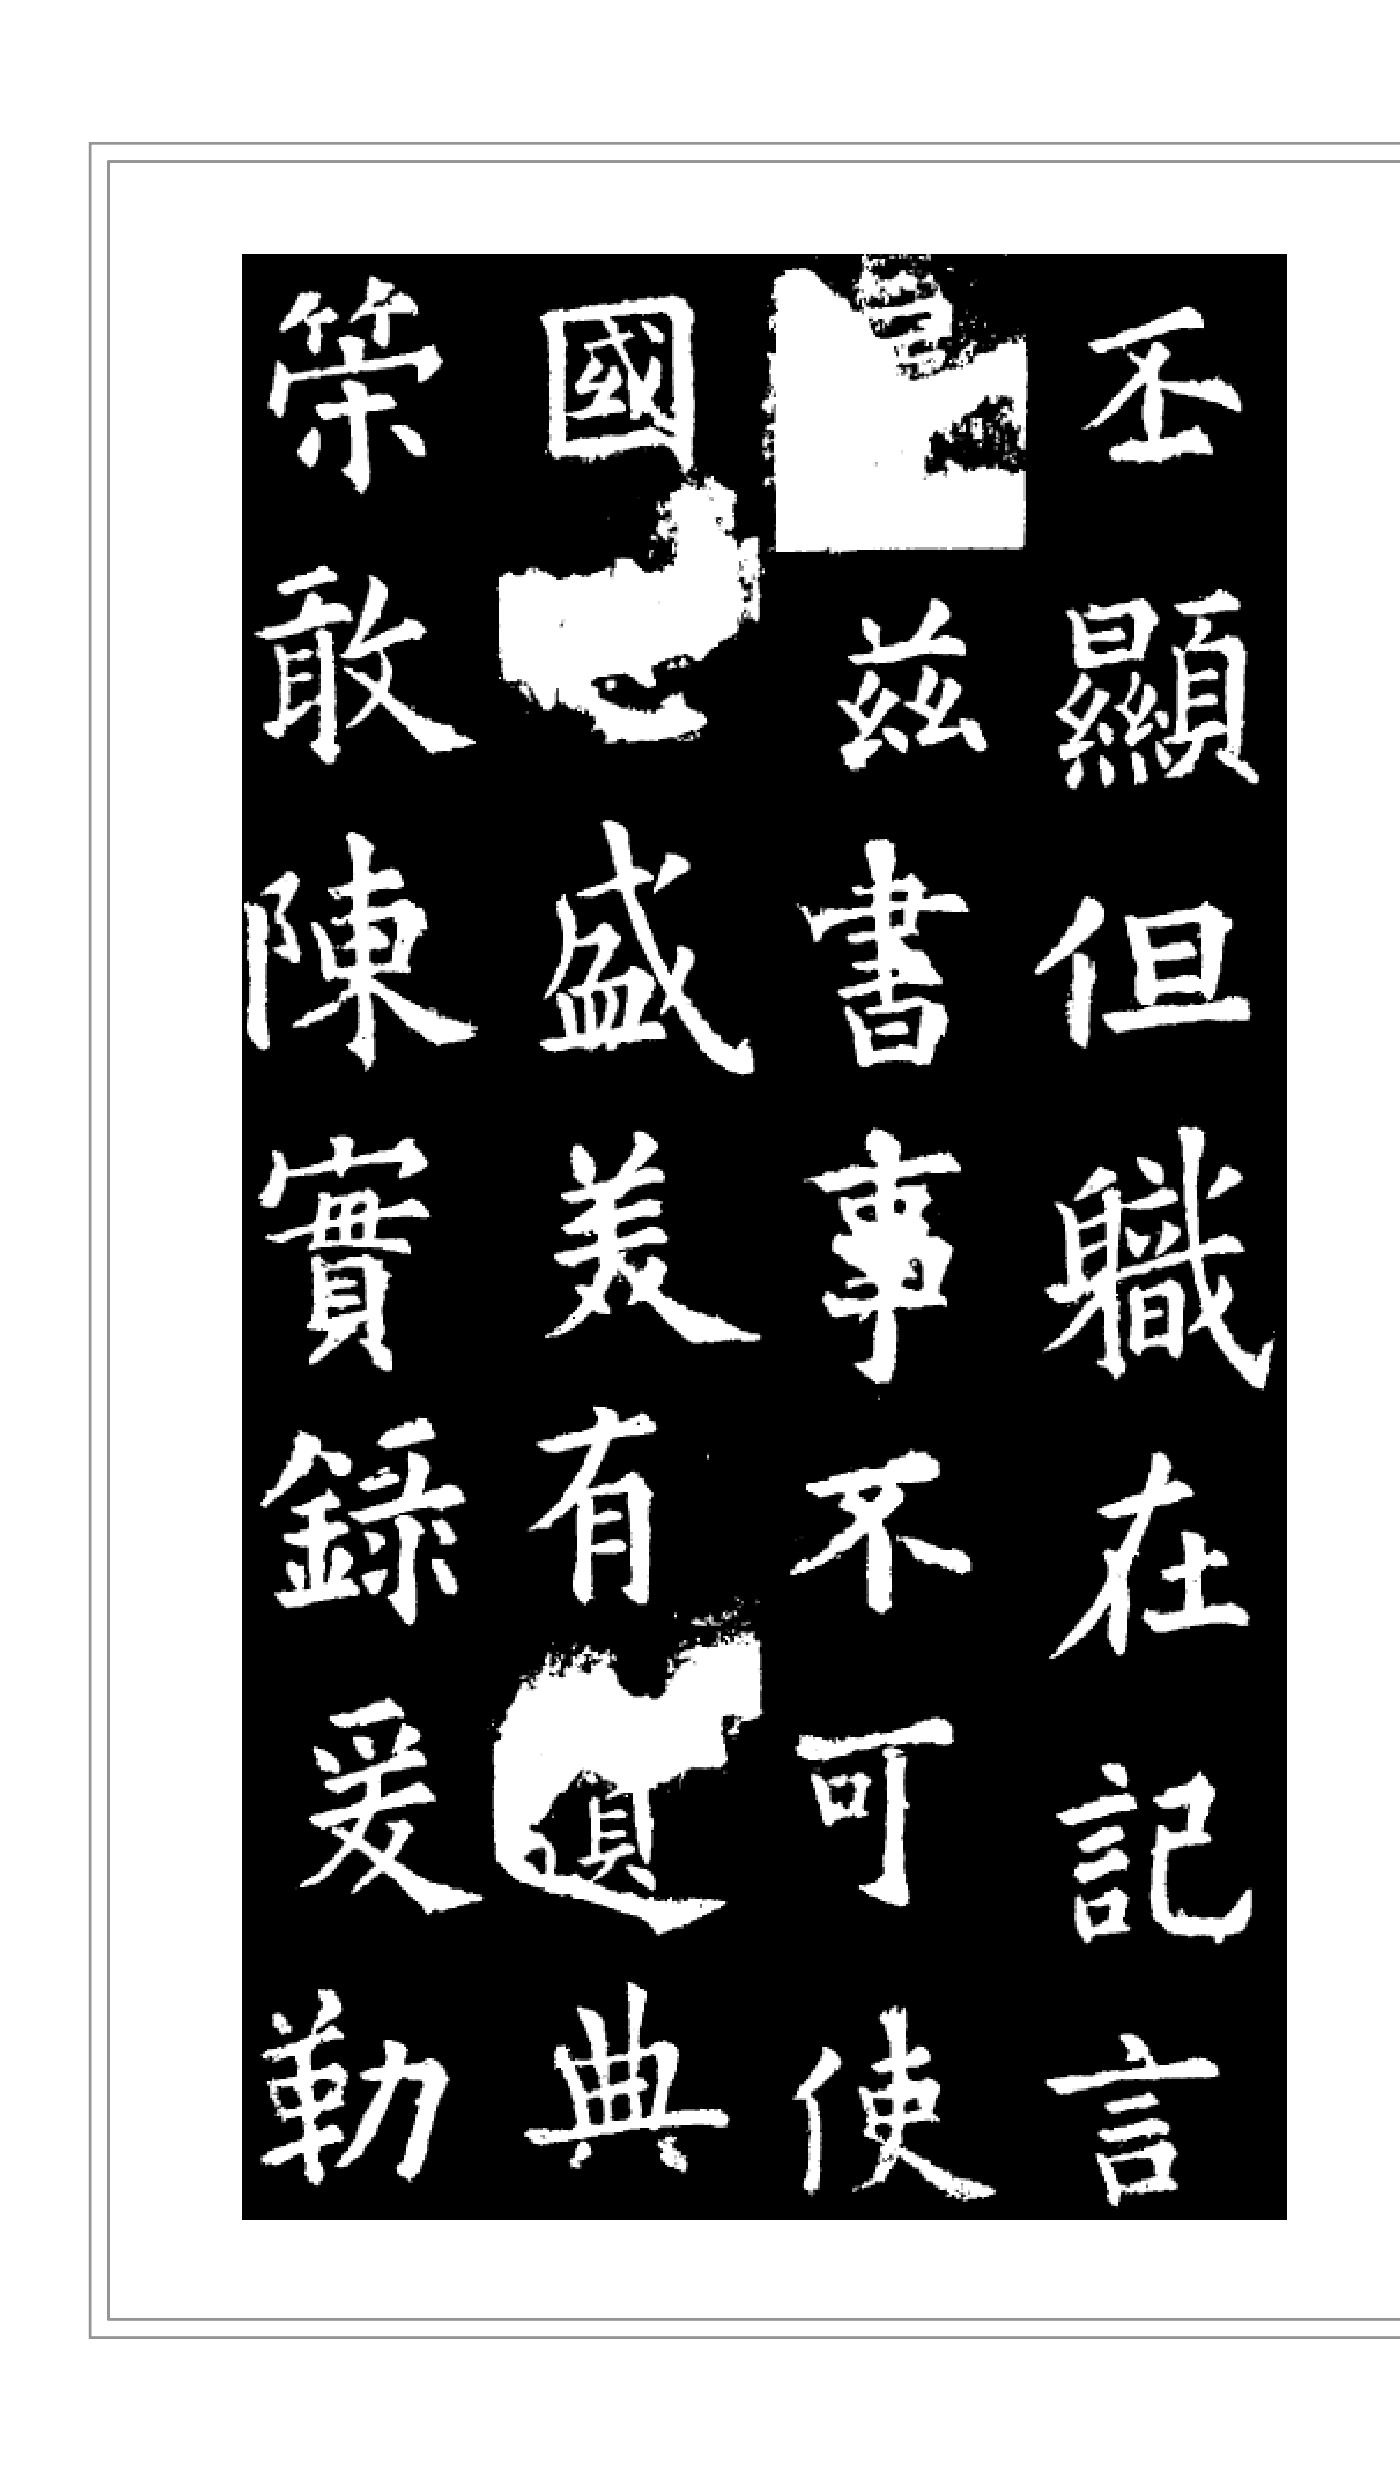 丕顯但職在記言
茲書事不可使
國盛美有遺典
策敢陳實錄爰勒